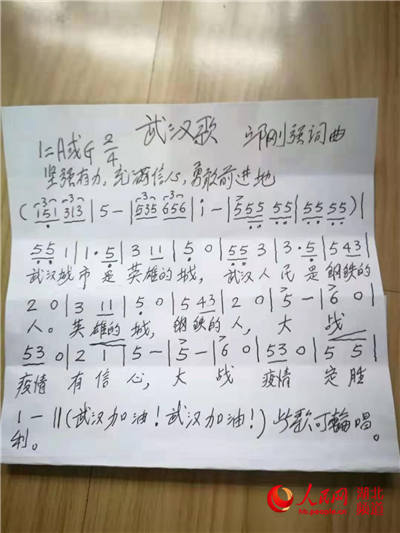 武汉歌 邱刚强词曲
1=A或G 2/4
坚强有力,充满信心,勇敢前进地
(151 313|5-|535 656|i-|555 55|55 55)|
55 1|1·5|3 11|5 0|55 3|3·5|543|
武汉城市是英雄的城,武汉人民是钢铁的
2 0|3 11|5 0|543|2 0|5-|6 0|
人。英雄的城,钢铁的人,大战
53 0|2 1|5-|5-|6 0|53 0|5 5|
疫情有信心,大战疫情定胜
1-‖(武汉加油!武汉加油!)此歌可輪唱。
利。
人民网 湖北频道